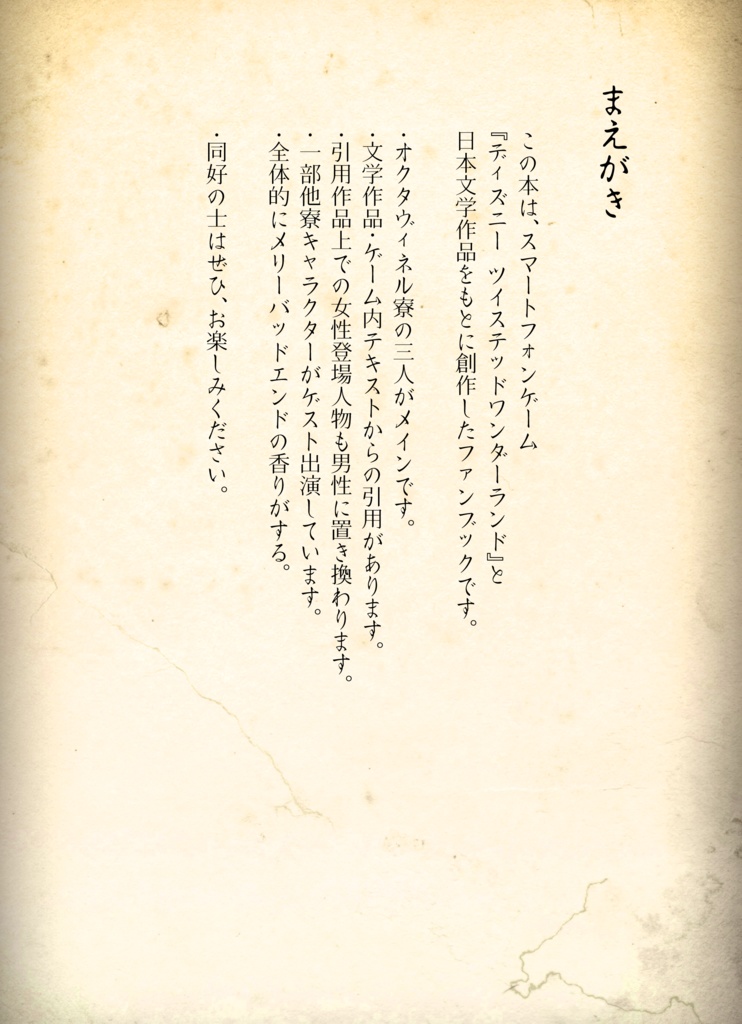 まえがき
この本は、スマートフォンゲーム
『ディズニー ツイステッドワンダーランド』と
日本文学作品をもとに創作したファンブックです。
・オクタヴィネル寮の三人がメインです。
・文学作品・ゲーム内テキストからの引用があります。
・引用作品上での女性登場人物も男性に置き換わります。
・一部他寮キャラクターがゲスト出演しています。
・全体的にメリーバッドエンドの香りがする。
・同好の士はぜひ、お楽しみください。